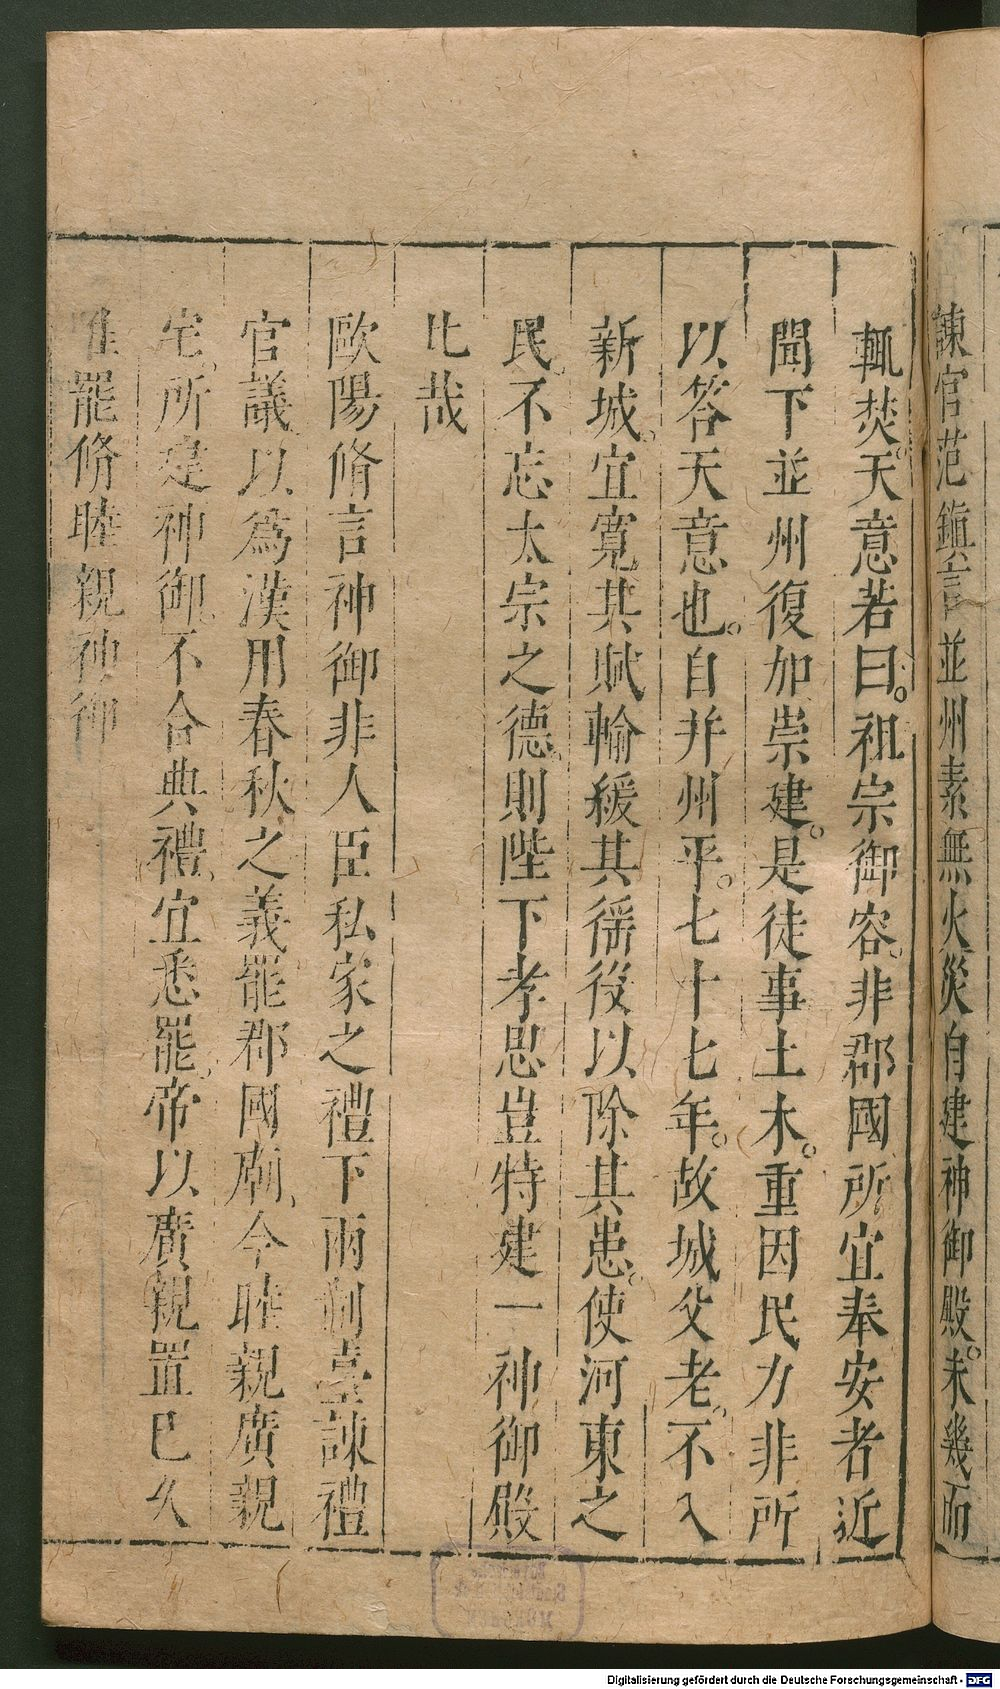 諫官范鎮言並州素無火災自建神御殿。未幾而
輒焚。天意若曰。祖宗御容。非郡國所宜奉安者近
聞下並州復加崇建。是徒事土木。重困民力非所
以答天意也。自并州平。七十七年。故城父老。不入
新城。宜寬其賦輸緩其徭役以除其患。使河東之
民。不忘太宗之德。則陛下孝思豈特建一神御殿
比哉
歐陽脩言神御非人臣私家之禮下兩制臺諫禮
官議。以為漢用春秋之義罷郡國廟。今睦親廣親
宅。所建神御。不合典禮。宜悉罷。帝以廣親置已久
唯罷脩睦親神御
Digitalisierung gefördert durch die Deutsche Forschungsgemeinschaft - DFG